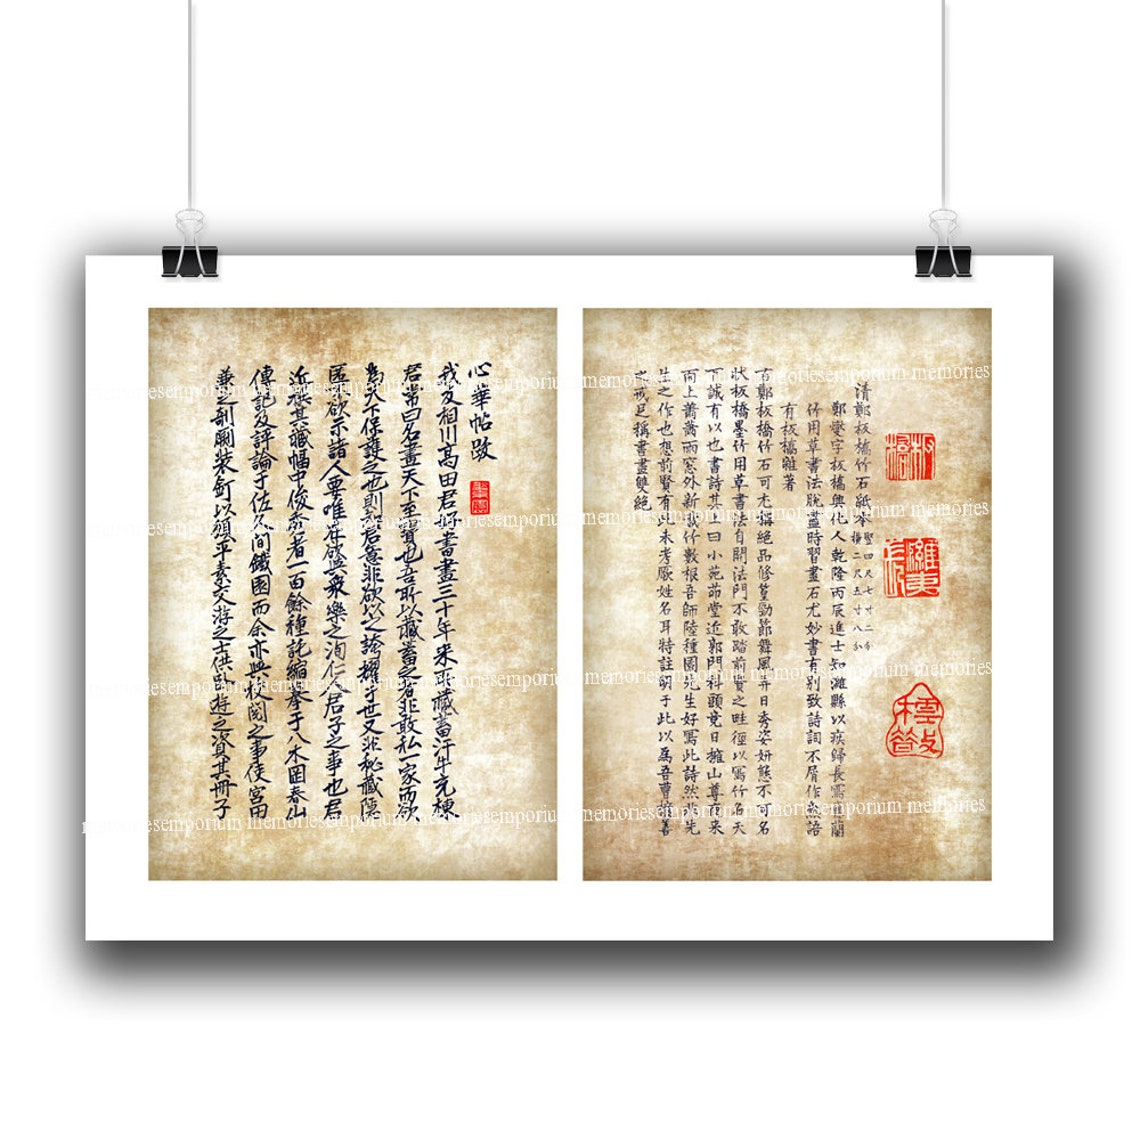 清鄭板橋竹石紙本 豎四尺七寸二分 橫二尺五寸八分
鄭燮字板橋興化人乾隆丙辰進士知濰縣以疾歸長寫蘭
竹用草書法脫盡時習畫石尤妙書有別致詩詞不屑作熟語
有板橋雜著
右鄭板橋竹石可尤稱絕品修篁勁節舞風弄日秀姿妍態不可名
狀板橋墨竹用草書法自開法門不敢踏前賢之畦徑以寫竹名天
下誠有以也書詩其上曰小苑茆堂近郭門科頭竟日擁山尊夜來
雨上蕭蕭雨窓外新栽竹數根吾師陸種園先生好寫此詩然非先
生之作也想前賢有此未考厥姓名耳特註明于此以為吾曹攘善
之戒足稱書畫雙絕
心華帖跋
我友相川高田君好書畫三十年來所藏蓄汗牛充棟
君常曰名畫天下至寶也吾所以藏蓄之者非敢私一家而欲
為天下保護之也則君意非欲以之誇耀于世又非秘藏隱
匿不欲示諸人要唯在欲與衆樂之洵仁人君子之事也君
近撰其藏幅中俊秀者一百餘種託縮摹于八木岡春山
傳記及評論于佐久間鐵園而余亦與校閱之事使宮田
兼之剞劂裝釘以頒平素交游之士供臥遊之資其冊子
memoriesemporium memoriesemporium memoriesemporium memoriesemporium memories
memoriesemporium memoriesemporium memoriesemporium memoriesemporium memories
memoriesemporium memoriesemporium memoriesemporium memoriesemporium memories
memoriesemporium memoriesemporium memoriesemporium memoriesemporium memories